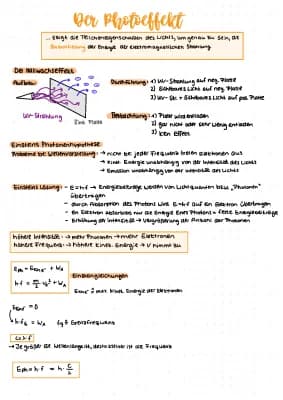 Der Photoeffekt
... zeigt die Teilcheneigenschaften des Lichts, um genau zu sein, die
Quantelung der Energie der elektromagnetischen Strahlung
Der Hallwachseffekt
Aufbau:
UV-Strahlung
Zink Platte
Durchführung: 1) UV-Strahlung auf neg. Platte
2) Sichtbares Licht auf neg. Platte
3) UV-Str. + Sichtbares Licht auf pos. Platte
Beobachtung: 1) Platte wird entladen
2) gar nicht oder sehr wenig entladen
3) kein Effekt
Einsteins Photonenhypothese
Probleme bei Wellenvorstellung: → nicht bei jeder Frequenz treten Elektronen aus
→ Kinet. Energie unabhängig von der Intensität des Lichts
→ Emission unabhängig von der Intensität des Lichts
Einsteins Lösung: - E=h·f → Energiebeträge werden von Lichtquanten bzw. "Photonen"
übertragen
- durch Absorption des Photons wird E=h·f auf ein Elektron übertragen
- ein Elektron absorbiert nur die Energie eines Photons = feste Energiebeträge
- Erhöhung der Intensität → Vergrößerung der Anzahl der Photonen
höhere Intensität: → mehr Photonen → mehr Elektronen
höhere Frequenz: → höhere kinet. Energie → v nimmt zu
E_Ph = E_kin,e⁻ + W_A
h·f = m/2 v_e² + W_A
Einsteingleichungen
E_kin,e⁻ ≙ max. kinet. Energie der Elektronen
= 0
↳ h·f_G = W_A f_G ≙ Grenzfrequenz
c = λ·f
→ Je größer die Wellenlänge ist, desto kleiner ist die Frequenz
E_Ph = h·f = h · c/λ